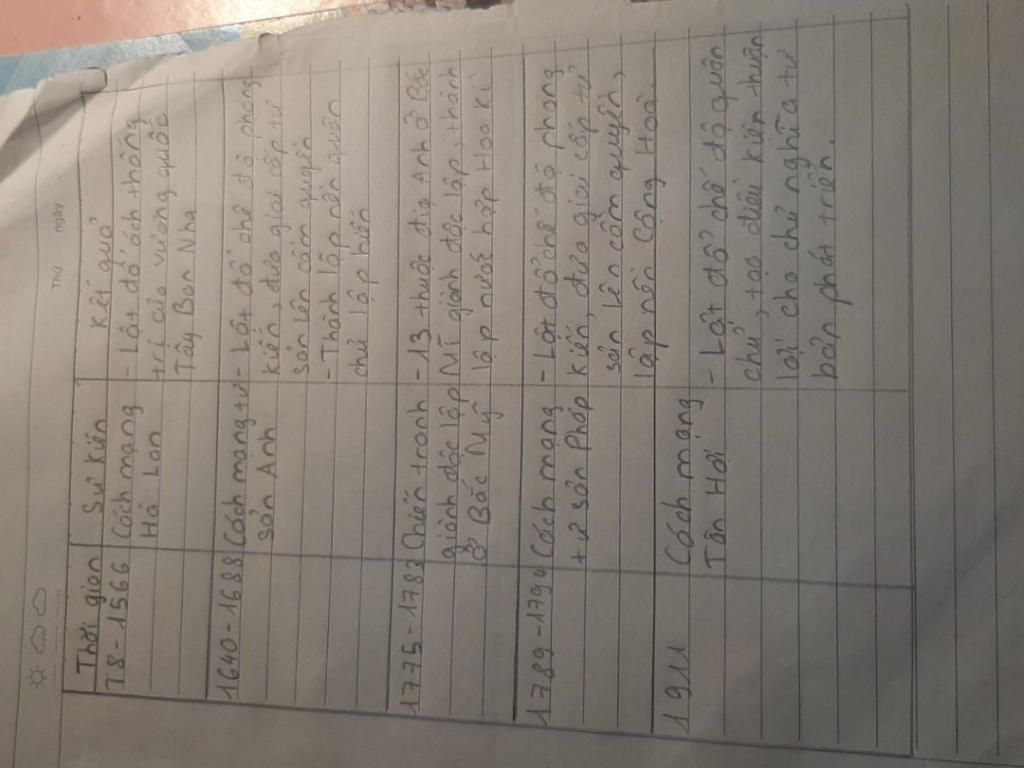 Thứ ngày
Thời gian Sự kiện Kết quả
T8-1566 Cách mạng - Lật đổ ách thống
Hà Lan trị của vương quốc
Tây Ban Nha
1640-1688 Cách mạng tư - Lật đổ chế độ phong
sản Anh kiến, đưa giai cấp tư
sản lên cầm quyền
- Thành lập nền quân
chủ lập hiến
1775-1783 Chiến tranh - 13 thuộc địa Anh ở Bắc
giành độc lập Mĩ giành độc lập, thành
ở Bắc Mỹ lập nước hợp Hoa Kì
1789-1794 Cách mạng - Lật đổ chế độ phong
tư sản Pháp kiến, đưa giai cấp tư
sản lên cầm quyền,
lập nền Cộng Hoà.
1911 Cách mạng - Lật đổ chế độ quân
Tân Hợi chủ, tạo điều kiện thuận
lợi cho chủ nghĩa tư
bản phát triển.